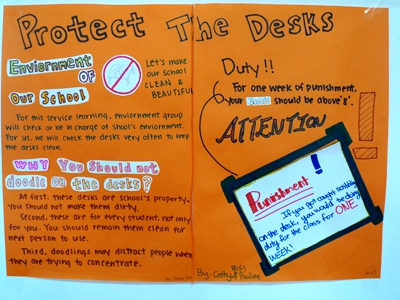 Protect The Desks
Enviornment
OF
Our School
Let's make
our school
CLEAN &
BEAUTIFUL
For this service learning, enviornment group
will check or be in charge of shool's enviornment.
For us, we will check the desks very often to keep
the desks clean.
WHY You Should not
doodle on the desks?
At first, these desks are school's property.
You should not make them dirty.
Second, these are for every student, not only
for you. You should remain them clean for
next person to use.
Third, doodlings may distract people when
they are trying to concentrate.
Duty!!
For one week of punishment,
your should be above "8".
ATTENTION!
Punishment!
If you get caught scribbling
on the desk, you would be doing
duty for the class for ONE
WEEK!
By: Cathy & Pauline